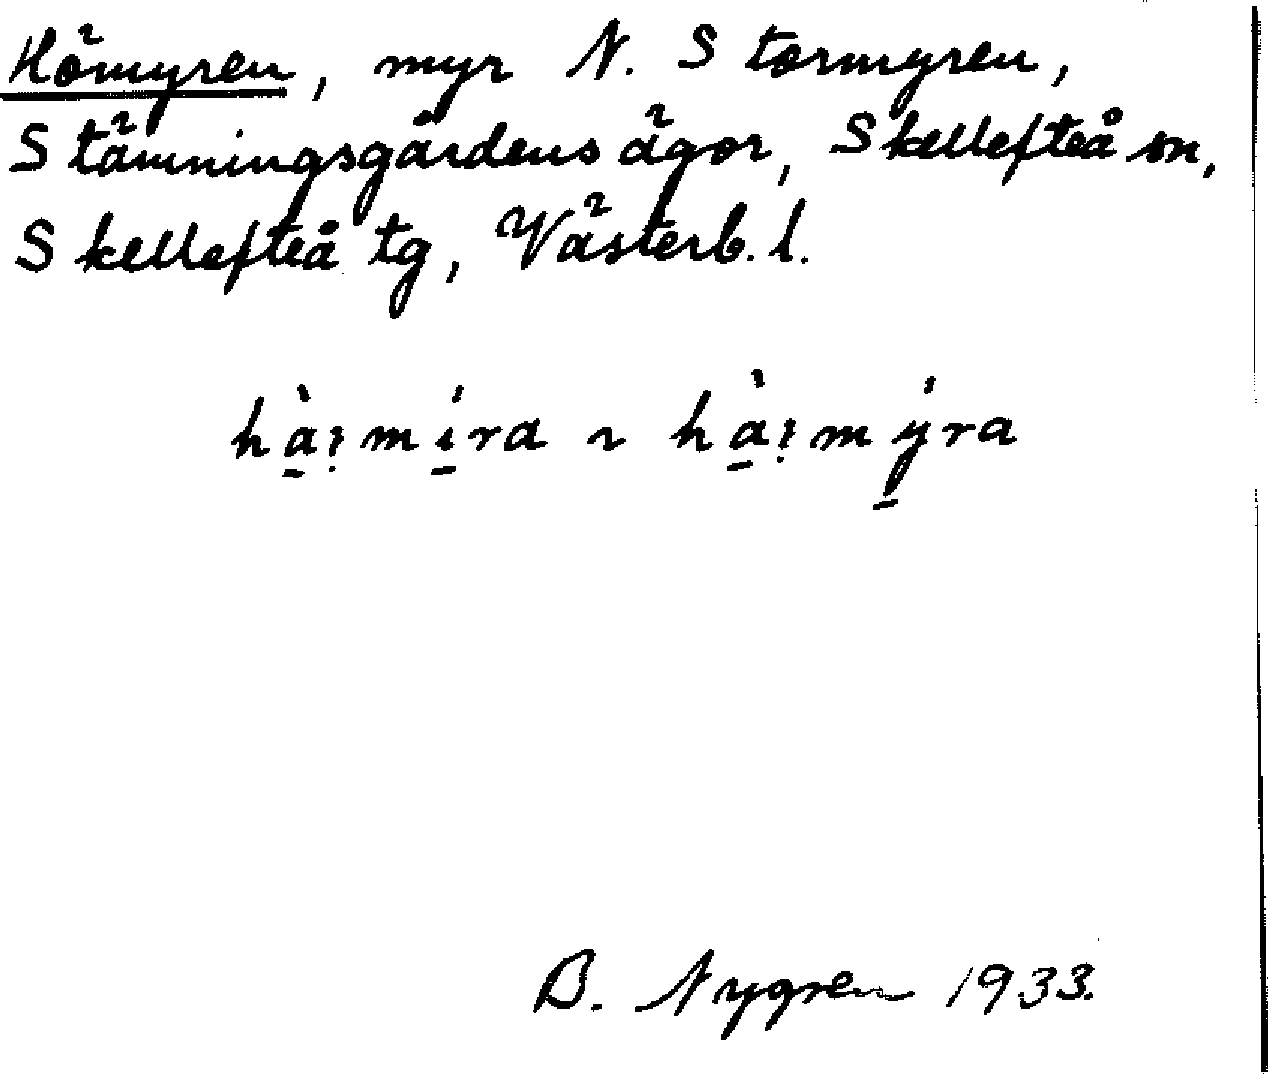 Hömyren, myr N. Stormyren,
Stämningsgårdens ägor, Skellefteå sn,
Skellefteå tg, Västerb. l.
hà̱ı̣míra ~ hà̱ı̣mýra
B. Nygren 1933.